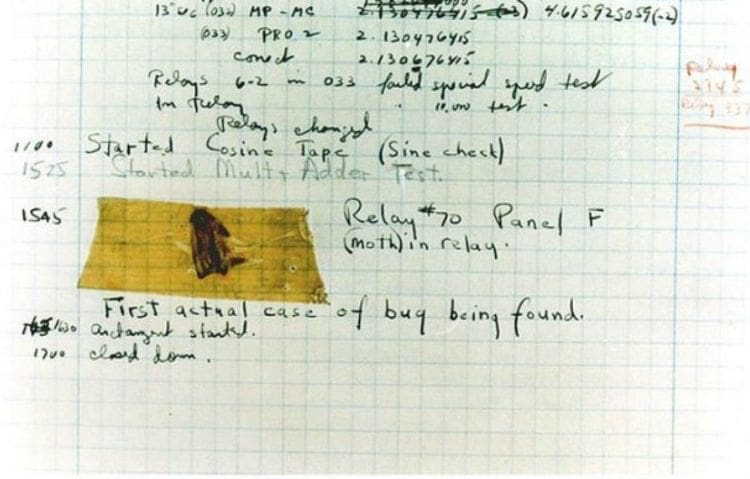 13" UC (032) MP - MC 2.130476415 (-3) 4.615925059(-2)
(033) PRO 2 2.130476415
conect 2.130676415
Relays 6-2 in 033 failed special speed test
In relay " 10,000 test .
Relays changed
Relay
2145
Relay 337
1100 Started Cosine Tape (Sine check)
1525 Started Mult + Adder Test.
1545 Relay #70 Panel F
(moth) in relay.
First actual case of bug being found.
1630 antangent started.
1700 closed down.